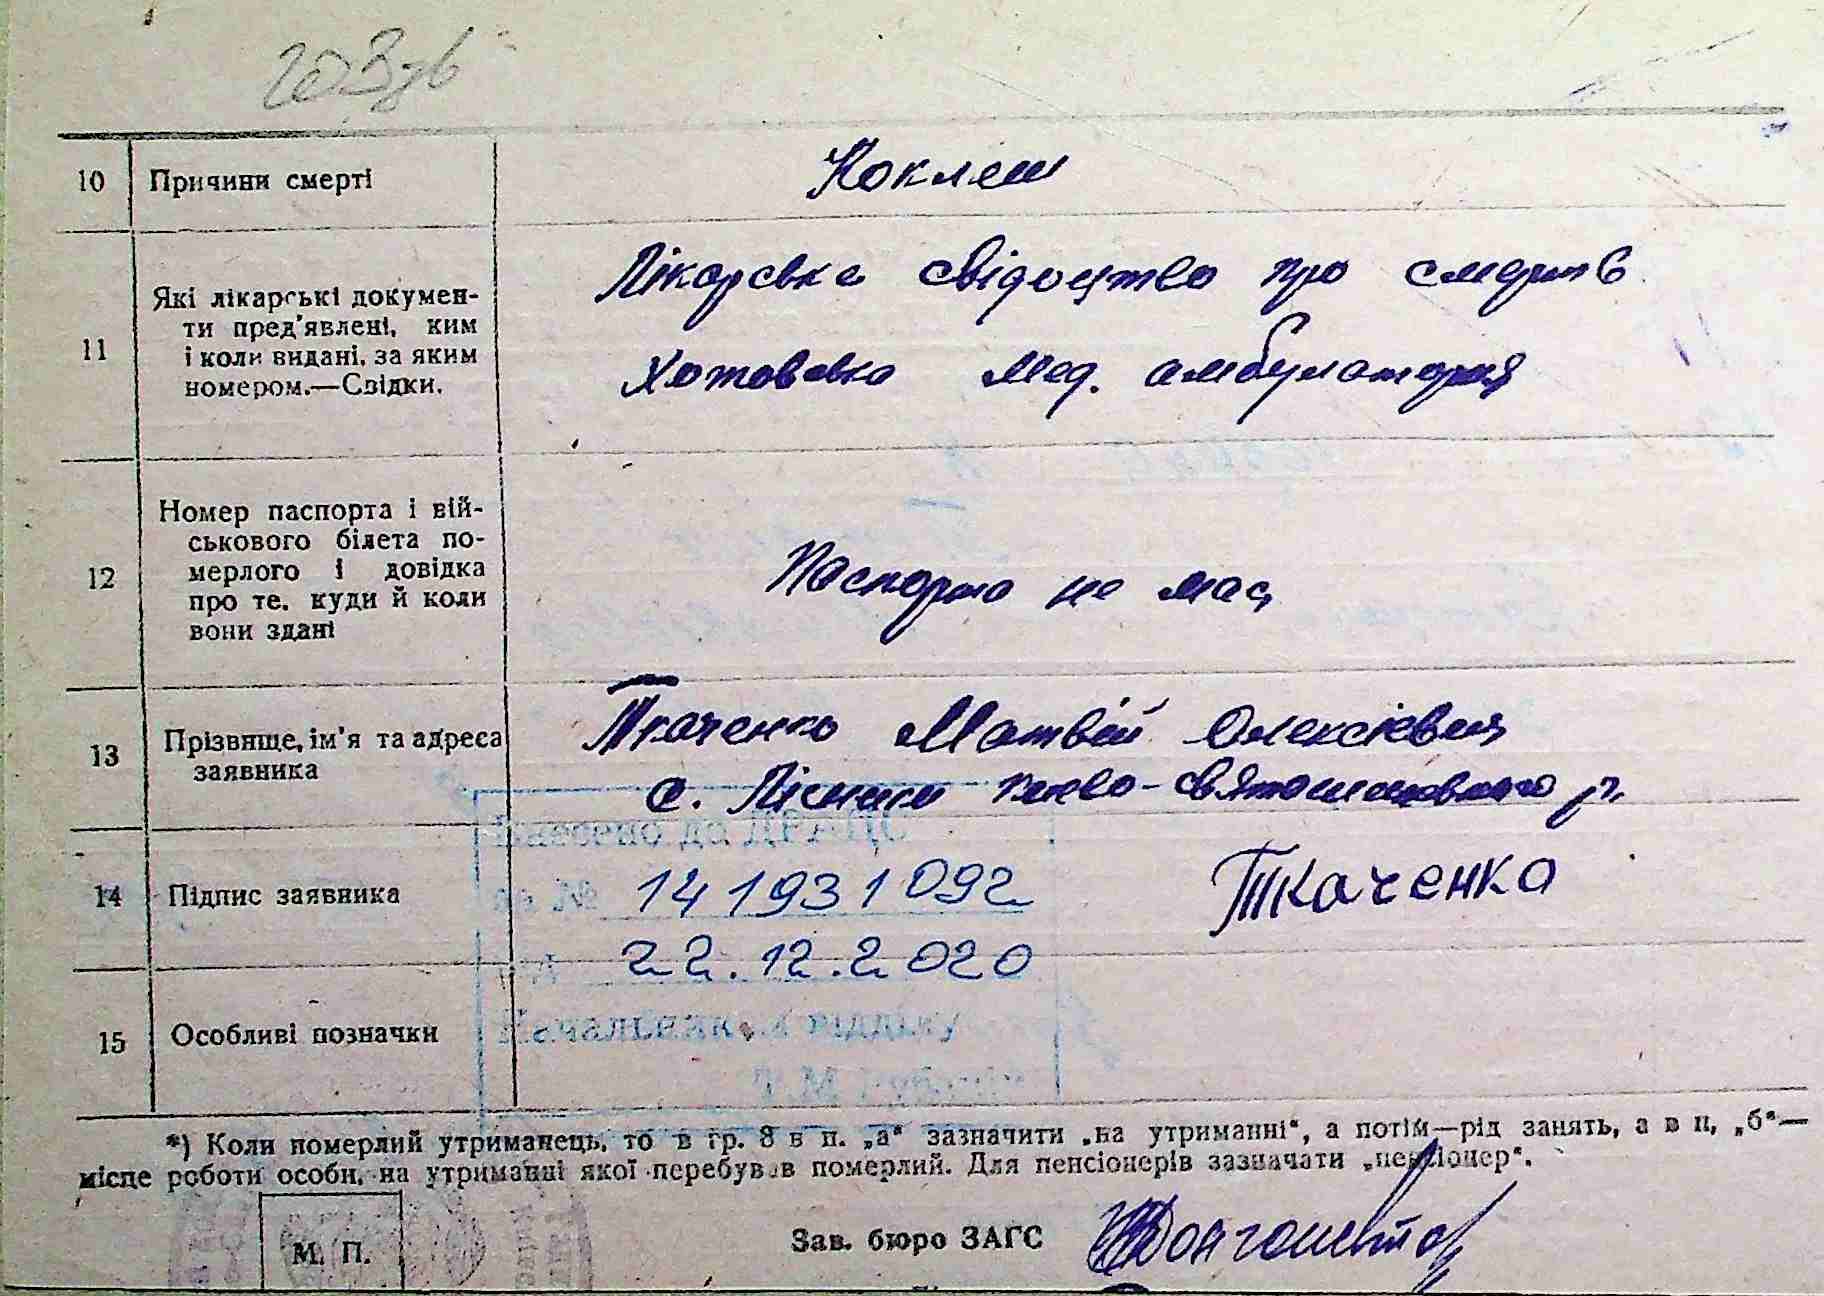 10 Причини смерті Коклюш
11 Які лікарські докумен-
ти пред'явлені, ким
і коли видані, за яким
номером.—Свідки.
Лікарське свідоцтво про смерть
Хотовська мед. амбулаторія
12 Номер паспорта і вій-
ськового білета по-
мерлого і довідка
про те, куди й коли
вони здані
Паспорта не має
13 Прізвище, ім'я та адреса
заявника
Ткаченко Матвій Олексієвич
с. Лісники Києво-Святошинського р.
14 Підпис заявника 14 1931 092 Ткаченко
22.12.2020
15 Особливі позначки
Начальник відділу
*) Коли померлий утриманець, то в гр. 8 в п. „а“ зазначити „на утриманні“, а потім—рід занять, а в п. „б“—
місце роботи особи, на утриманні якої перебував померлий. Для пенсіонерів зазначати „пенсіонер“.
М. П. Зав. бюро ЗАГС